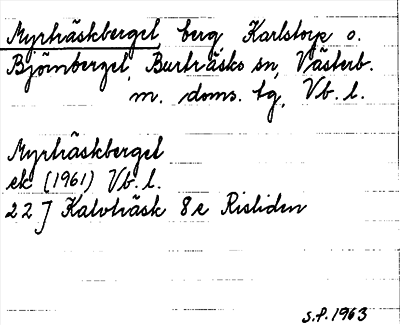 Myrträskberget, berg, Karlstorp o.
Björnberget, Burträsks sn, Västerb.
m. doms. tg, Vb. l.
Myrträskberget
ek (1961) Vb. l.
22 J Kalvträsk 8e Risliden
S.P. 1963